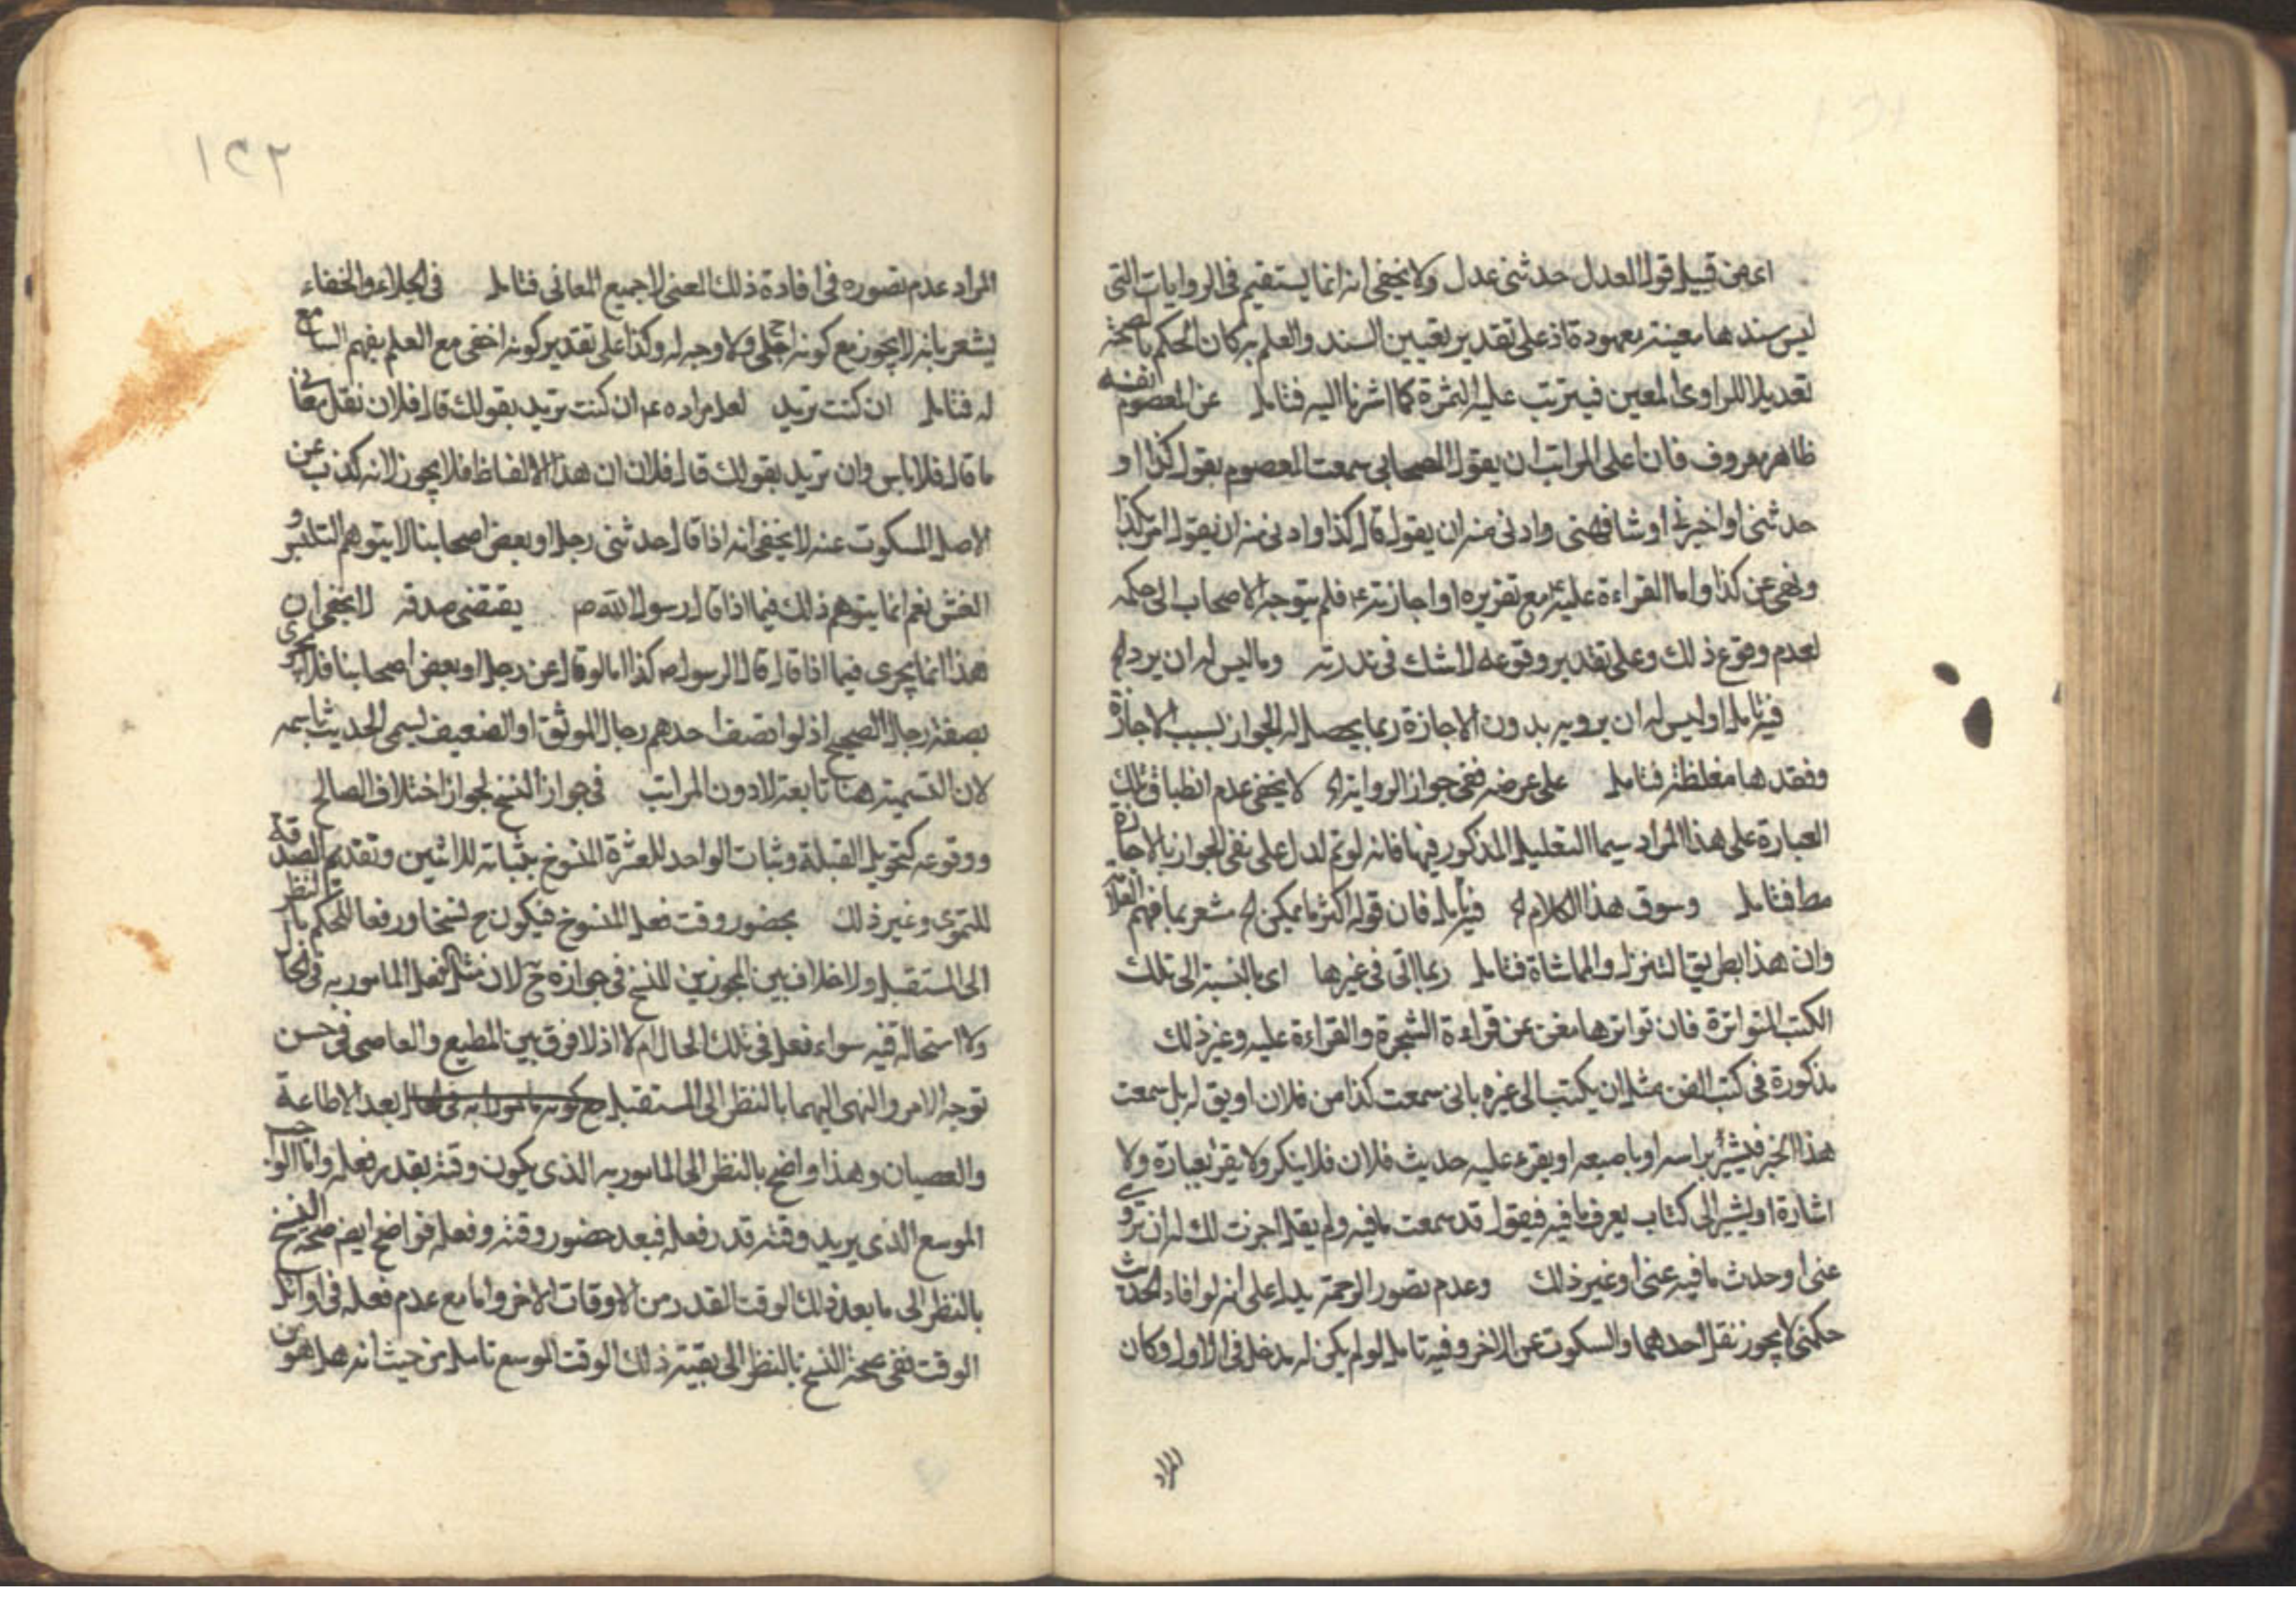 اعم من قبيل قول العدل حدثنى عدل ولا يخفى انه انما يستقيم فى الروايات التى
ليس سندها معينة معهودة اذ على تقدير تعيين السند والعلم به كان الحكم بالصحة
تعديلا للراوى المعين فيترتب عليه الثمرة كما اشرنا اليه فتامل عن المعصوم
ظاهر معروف فان اعلى المراتب ان يقول الصحابى سمعت المعصوم يقول كذا او
حدثنى او اخبرنى او شافهنى وادنى منه ان يقول قال كذا وادنى منه ان يقول امر بكذا
ونهى عن كذا واما القراءة عليه مع تقريره او اجازته فلم يتوجه الاصحاب الى حكمه
لعدم وقوع ذلك وعلى تقدير وقوعه لا شك فى ندرته وما ليس له ان يرد
فيه تامل اوليس له ان يرويه بدون الاجازة ربما يحصل له الجواز بسبب الاجازة
وفقدها مغلظة فتامل على عرضه نفى جواز الرواية لا يخفى عدم انطباق تلك
العبارة على هذا المراد سيما التعليل المذكور فيها فانه لو تم لدل على نفى الجواز بالاجازة
مط فتامل وسوق هذا الكلام فيه تامل فان قوله اكثر ما يمكن مشعر بما فهم
وان هذا بطريق التنزل والمماشاة فتامل ربما اتى فى غيرها اى بالنسبة الى تلك
الكتب المتواترة فان تواترها مغن عن قراءة الشجرة والقراءة عليه وغير ذلك
مذكورة فى كتب الفن مثل ان يكتب الى غيره بانى سمعت كذا من فلان او يق له بل سمعت
هذا الخبر فيشير براسه او باصبعه او يقرء عليه حديث فلان فلا ينكر ولا يقر بعبارة ولا
اشارة او يشير الى كتاب يعرف ما فيه فيقول قد سمعت ما فيه ولم يقل اجزت لك ان تروى
عنى او حدث ما فيه عنى او غير ذلك وعدم تصور الرحمة يدل على انه لو افاد الحديث
حكمى لا يجوز نقل احدهما والسكوت عن الاخر وفيه تامل لو لم يكن له مدخل فى الاول وكان
المراد
١٢٢
المراد عدم تصوره فى افادة ذلك المعنى لا جميع المعانى فتامل فى الجلاء والخفاء
يشعر بانه لا يجوز مع كونه اجلى ولا وجه له وكذا على تقدير كونه اخفى مع العلم بفهم السامع
له فتامل ان كنت تريد لعل مراده ان كنت تريد بقولك قال فلان نقل معانى
ما قال فلا باس وان تريد بقولك قال فلان ان هذا الالفاظ فلا يجوز لانه كذب عن
الاصل السكوت عنه لا يخفى انه اذا قال حدثنى رجل او بعض اصحابنا لا يتوهم التلبيس و
الغش نعم انما يتوهم ذلك فيما اذا قال رسول الله ص يقتضى صدقه لا يخفى ان
هذا انما يجرى فيما اذا قال قال الرسول ص كذا اما لو قال عن رجل او بعض اصحابنا فلا يجرى
بصفة رجال الصحيح اذ لو اتصف احدهم رجال الموثق او الضعيف يسمى الحديث باسمه
لان التسمية هنا تابعة لادون المراتب فى جواز النسخ لجواز اختلاف المصالح
ووقوعه كتحويل القبلة وثبات الواحد للعشرة المنسوخ بثباته للاثنين وتقديم الصدقة
للنجوى وغير ذلك بحضور وقت فعل المنسوخ فيكون ح نسخا ورفعا للحكم بالنظر
الى المستقبل ولا خلاف بين المجوزين للنسخ فى جوازه ح لان مثل الفعل المامور به فى الحال
ولا استحالة فيه سواء فعل فى تلك الحال ام لا اذ لا فرق بين المطيع والعاصى فى حسن
توجه الامر والنهى اليهما بالنظر الى المستقبل بعد الاطاعة
والعصيان وهذا واضح بالنظر الى المامور به الذى يكون وقته بقدر فعله واما الواجب
الموسع الذى يزيد وقته قدر فعله فبعد حضور وقته وفعله فواضح ايضا صحة النسخ
بالنظر الى ما بعد ذلك الوقت القدر من الاوقات الاخر واما مع عدم فعله فى اوائل
الوقت ففى صحة النسخ بالنظر الى بقية ذلك الوقت الموسع تامل من حيث انه هل هو من